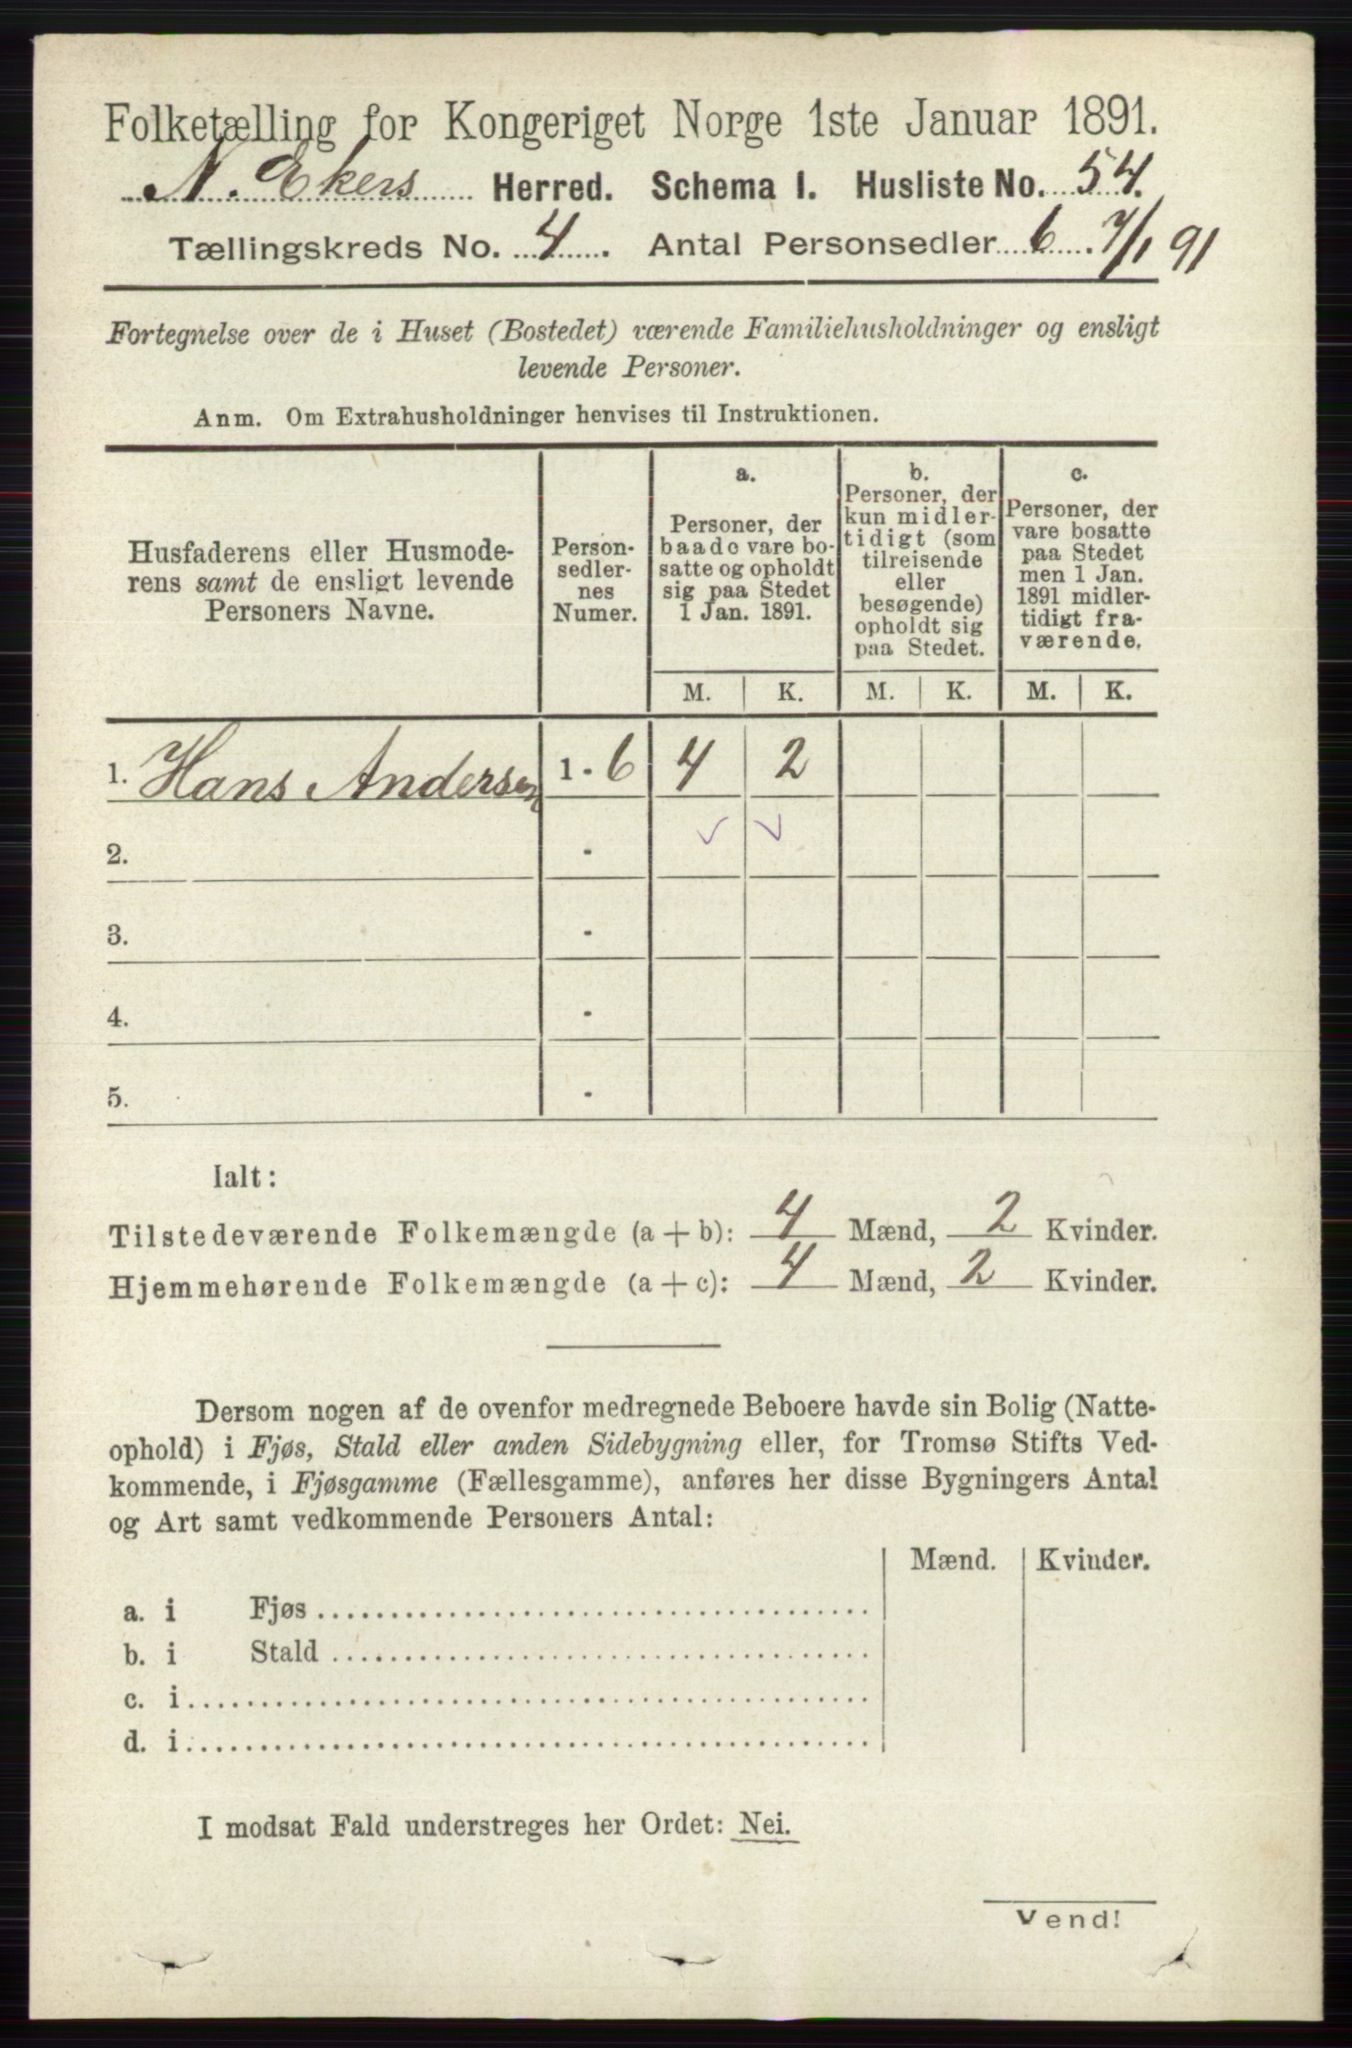 Folketælling for Kongeriget Norge 1ste Januar 1891.
N. Ekers Herred. Schema I. Husliste No. 54.
Tællingskreds No. 4. Antal Personsedler 6. 7/1 91
Fortegnelse over de i Huset (Bostedet) værende Familiehusholdninger og ensligt
levende Personer.
Anm. Om Extrahusholdninger henvises til Instruktionen.
Husfaderens eller Husmode-
rens samt de ensligt levende
Personers Navne.
Person-
sedler-
nes
Numer.
a.
Personer, der
baade vare bo-
satte og opholdt
sig paa Stedet
1 Jan. 1891.
b.
Personer, der
kun midler-
tidigt (som
tilreisende
eller
besøgende)
opholdt sig
paa Stedet.
c.
Personer, der
vare bosatte
paa Stedet
men 1 Jan.
1891 midler-
tidigt fra-
værende.
M. K. M. K. M. K.
1. Hans Andersen 1 - 6 4 2
2. -
3. -
4. -
5. -
Ialt:
Tilstedeværende Folkemængde (a + b): 4 Mænd, 2 Kvinder.
Hjemmehørende Folkemængde (a + c): 4 Mænd, 2 Kvinder.
Dersom nogen af de ovenfor medregnede Beboere havde sin Bolig (Natte-
ophold) i Fjøs, Stald eller anden Sidebygning eller, for Tromsø Stifts Ved-
kommende, i Fjøsgamme (Fællesgamme), anføres her disse Bygningers Antal
og Art samt vedkommende Personers Antal:
Mænd. Kvinder.
a. i Fjøs
b. i Stald
c. i
d. i
I modsat Fald understreges her Ordet: Nei.
Vend!